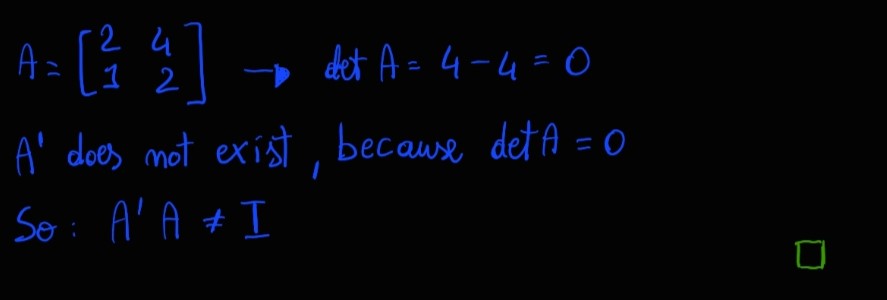 A = [2 4 1 2] → det A = 4 - 4 = 0
A' does not exist, because det A = 0
So : A' A ≠ I